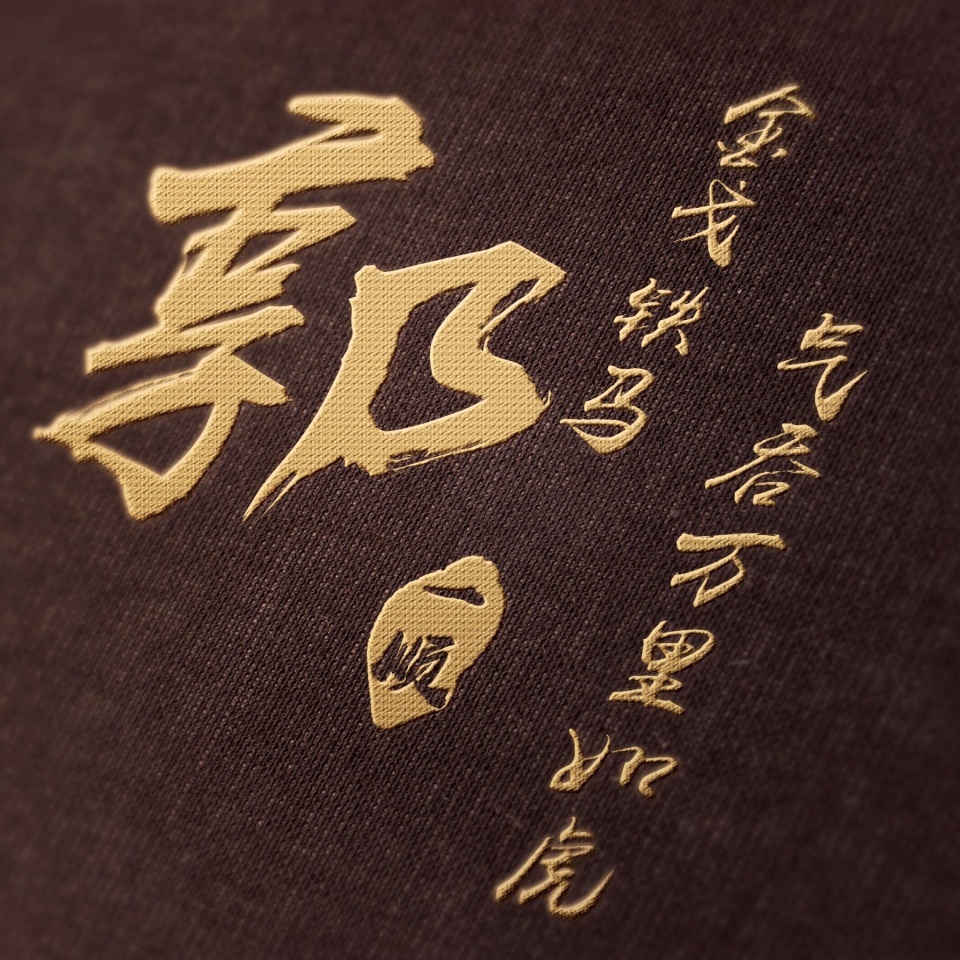 郭
一顺
金戈铁马
气吞万里如虎